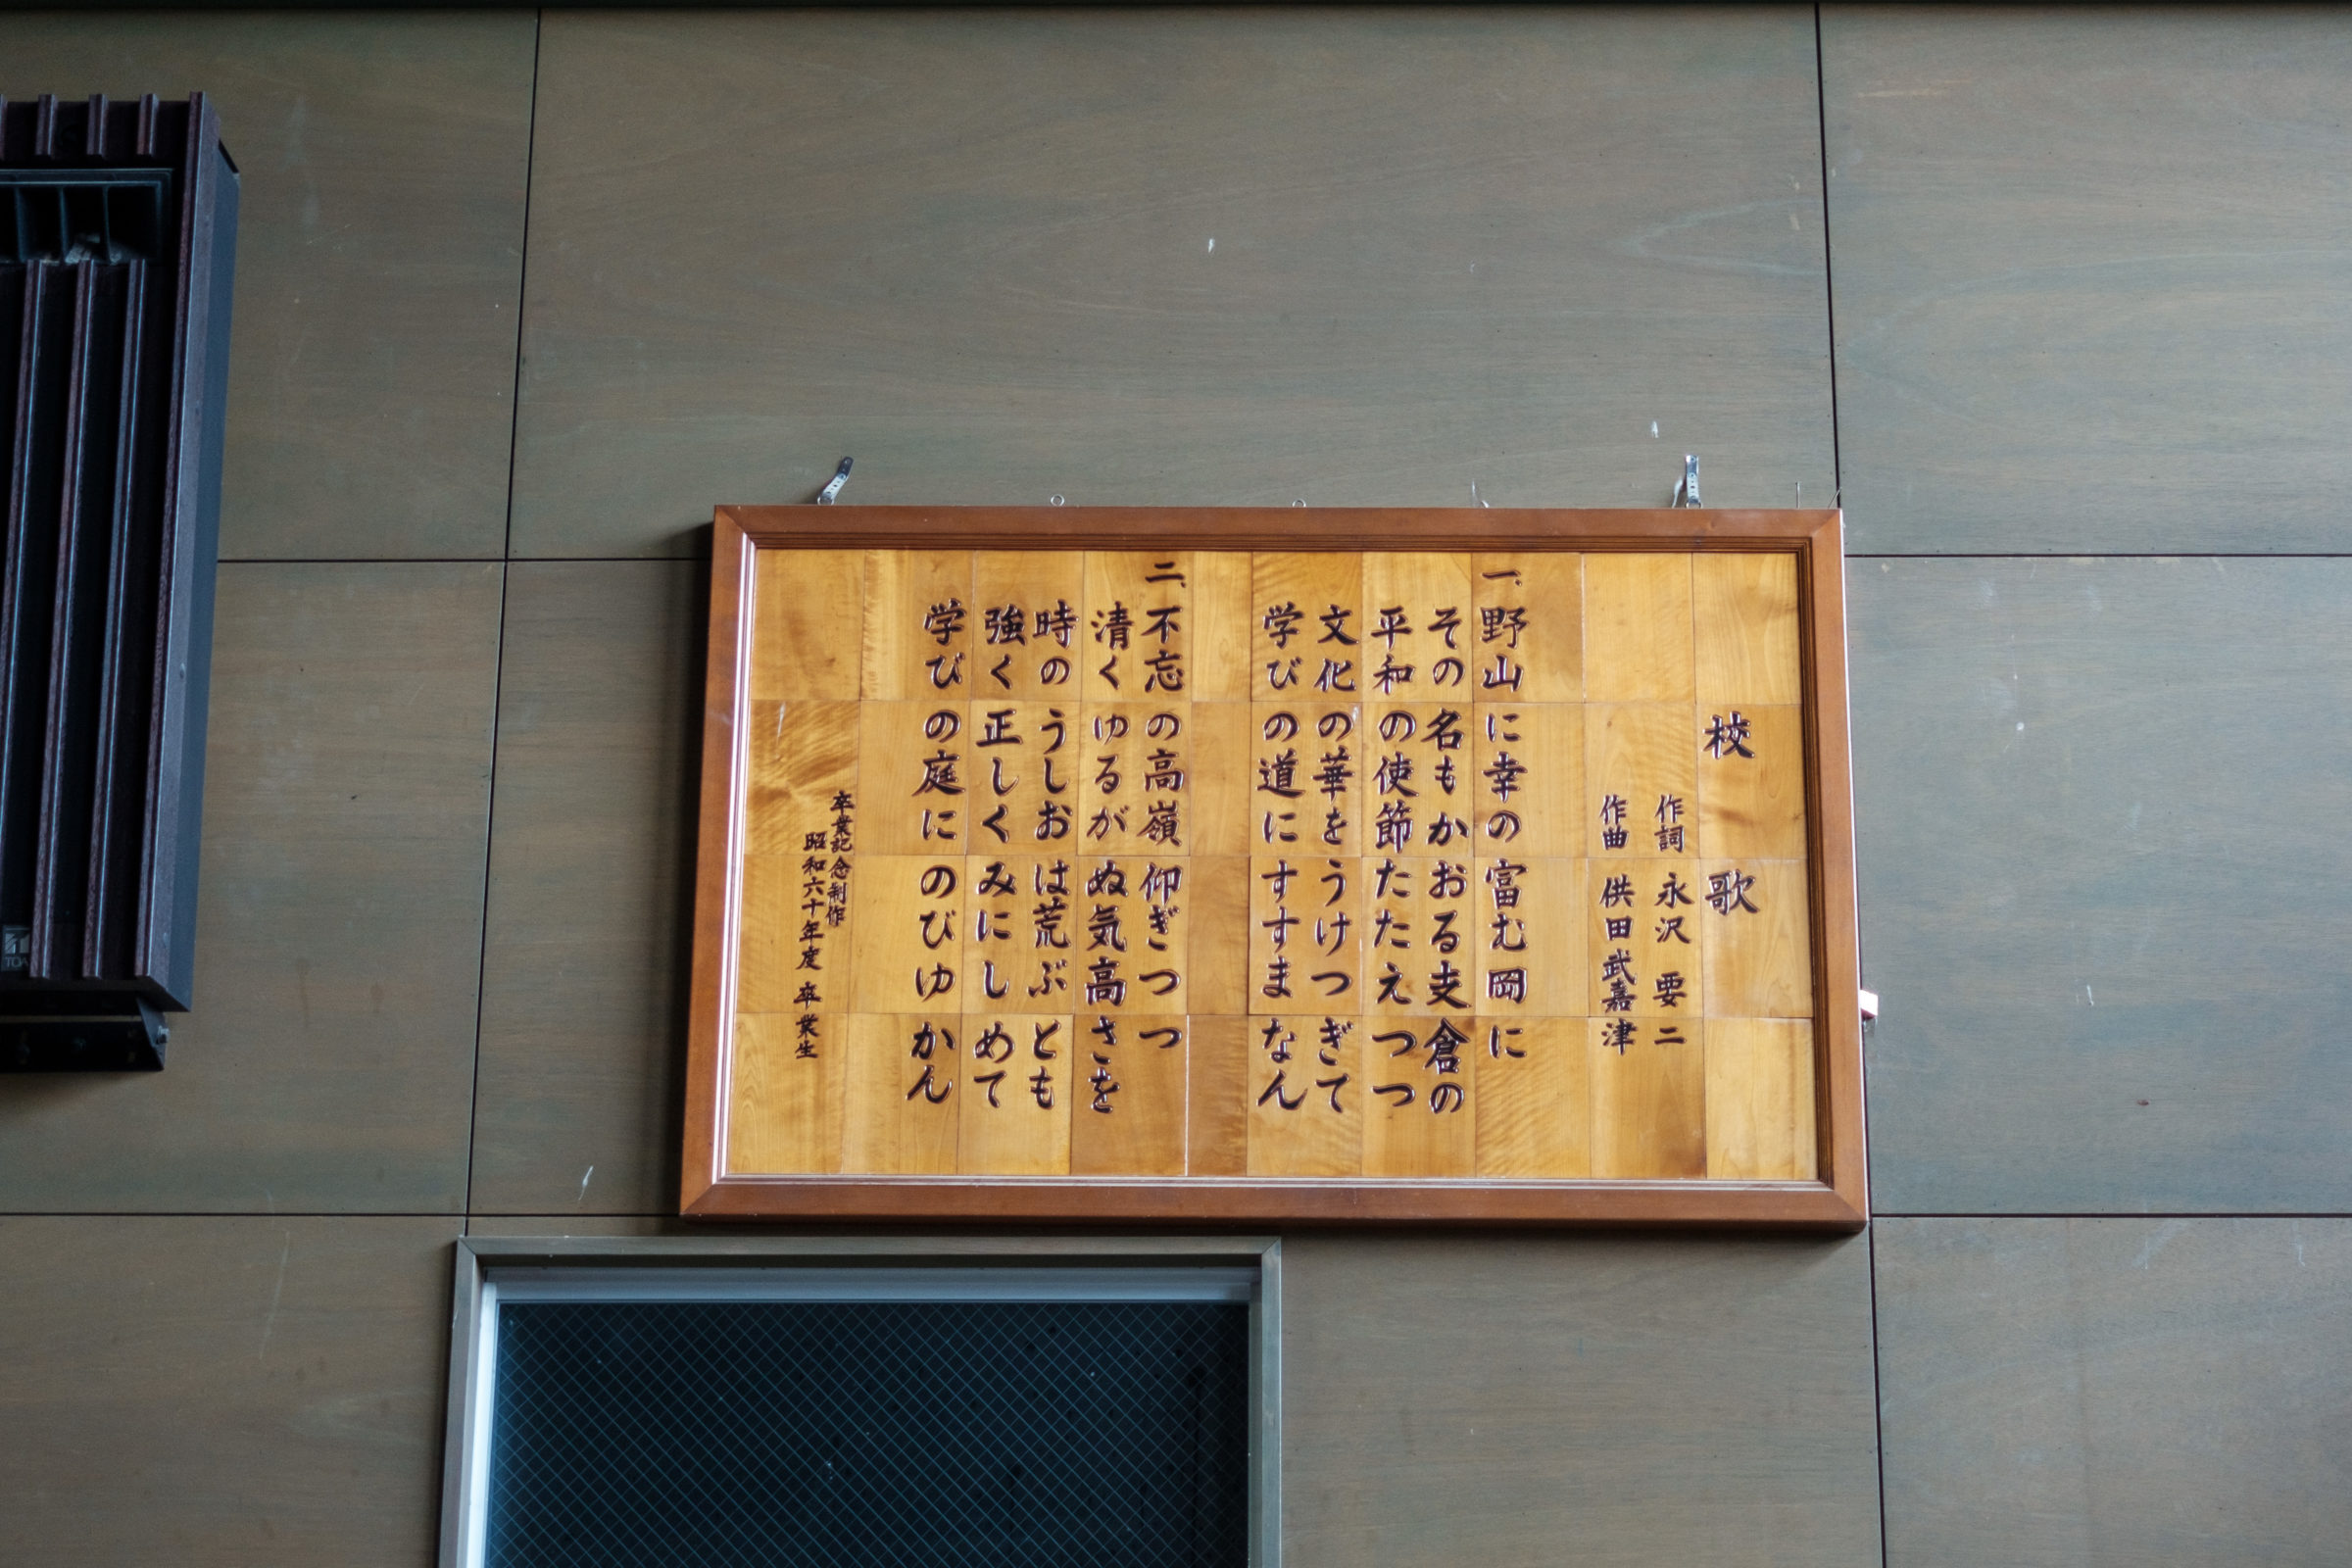 校歌
作詞 永沢要二
作曲 供田武嘉津
一、野山に幸の富む岡に
その名もかおる支倉の
平和の使節たたえつつ
文化の華をうけつぎて
学びの道にすすまなん
二、不忘の高嶺仰ぎつつ
清くゆるがぬ気高さを
時のうしおは荒ぶとも
強く正しくみにしめて
学びの庭にのびゆかん
卒業記念制作
昭和六十年度 卒業生
TOA